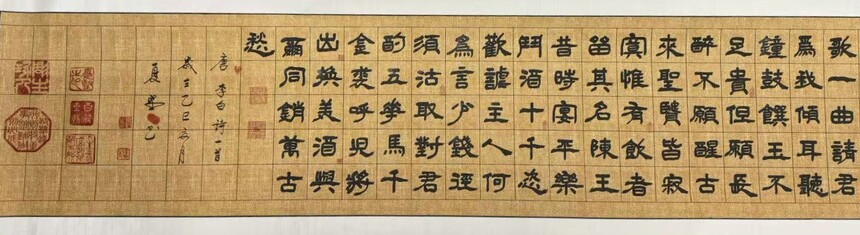 歌一曲請君
爲我傾耳聽
鐘鼓饌玉不
足貴但願長
醉不願醒古
來聖賢皆寂
寞惟有飲者
留其名陳王
昔時宴平樂
鬥酒十千恣
歡謔主人何
爲言少錢逕
須沽取對君
酌五花馬千
金裘呼兒將
出換美酒與
爾同銷萬古
愁
唐李白詩一首
乙巳月
夏書